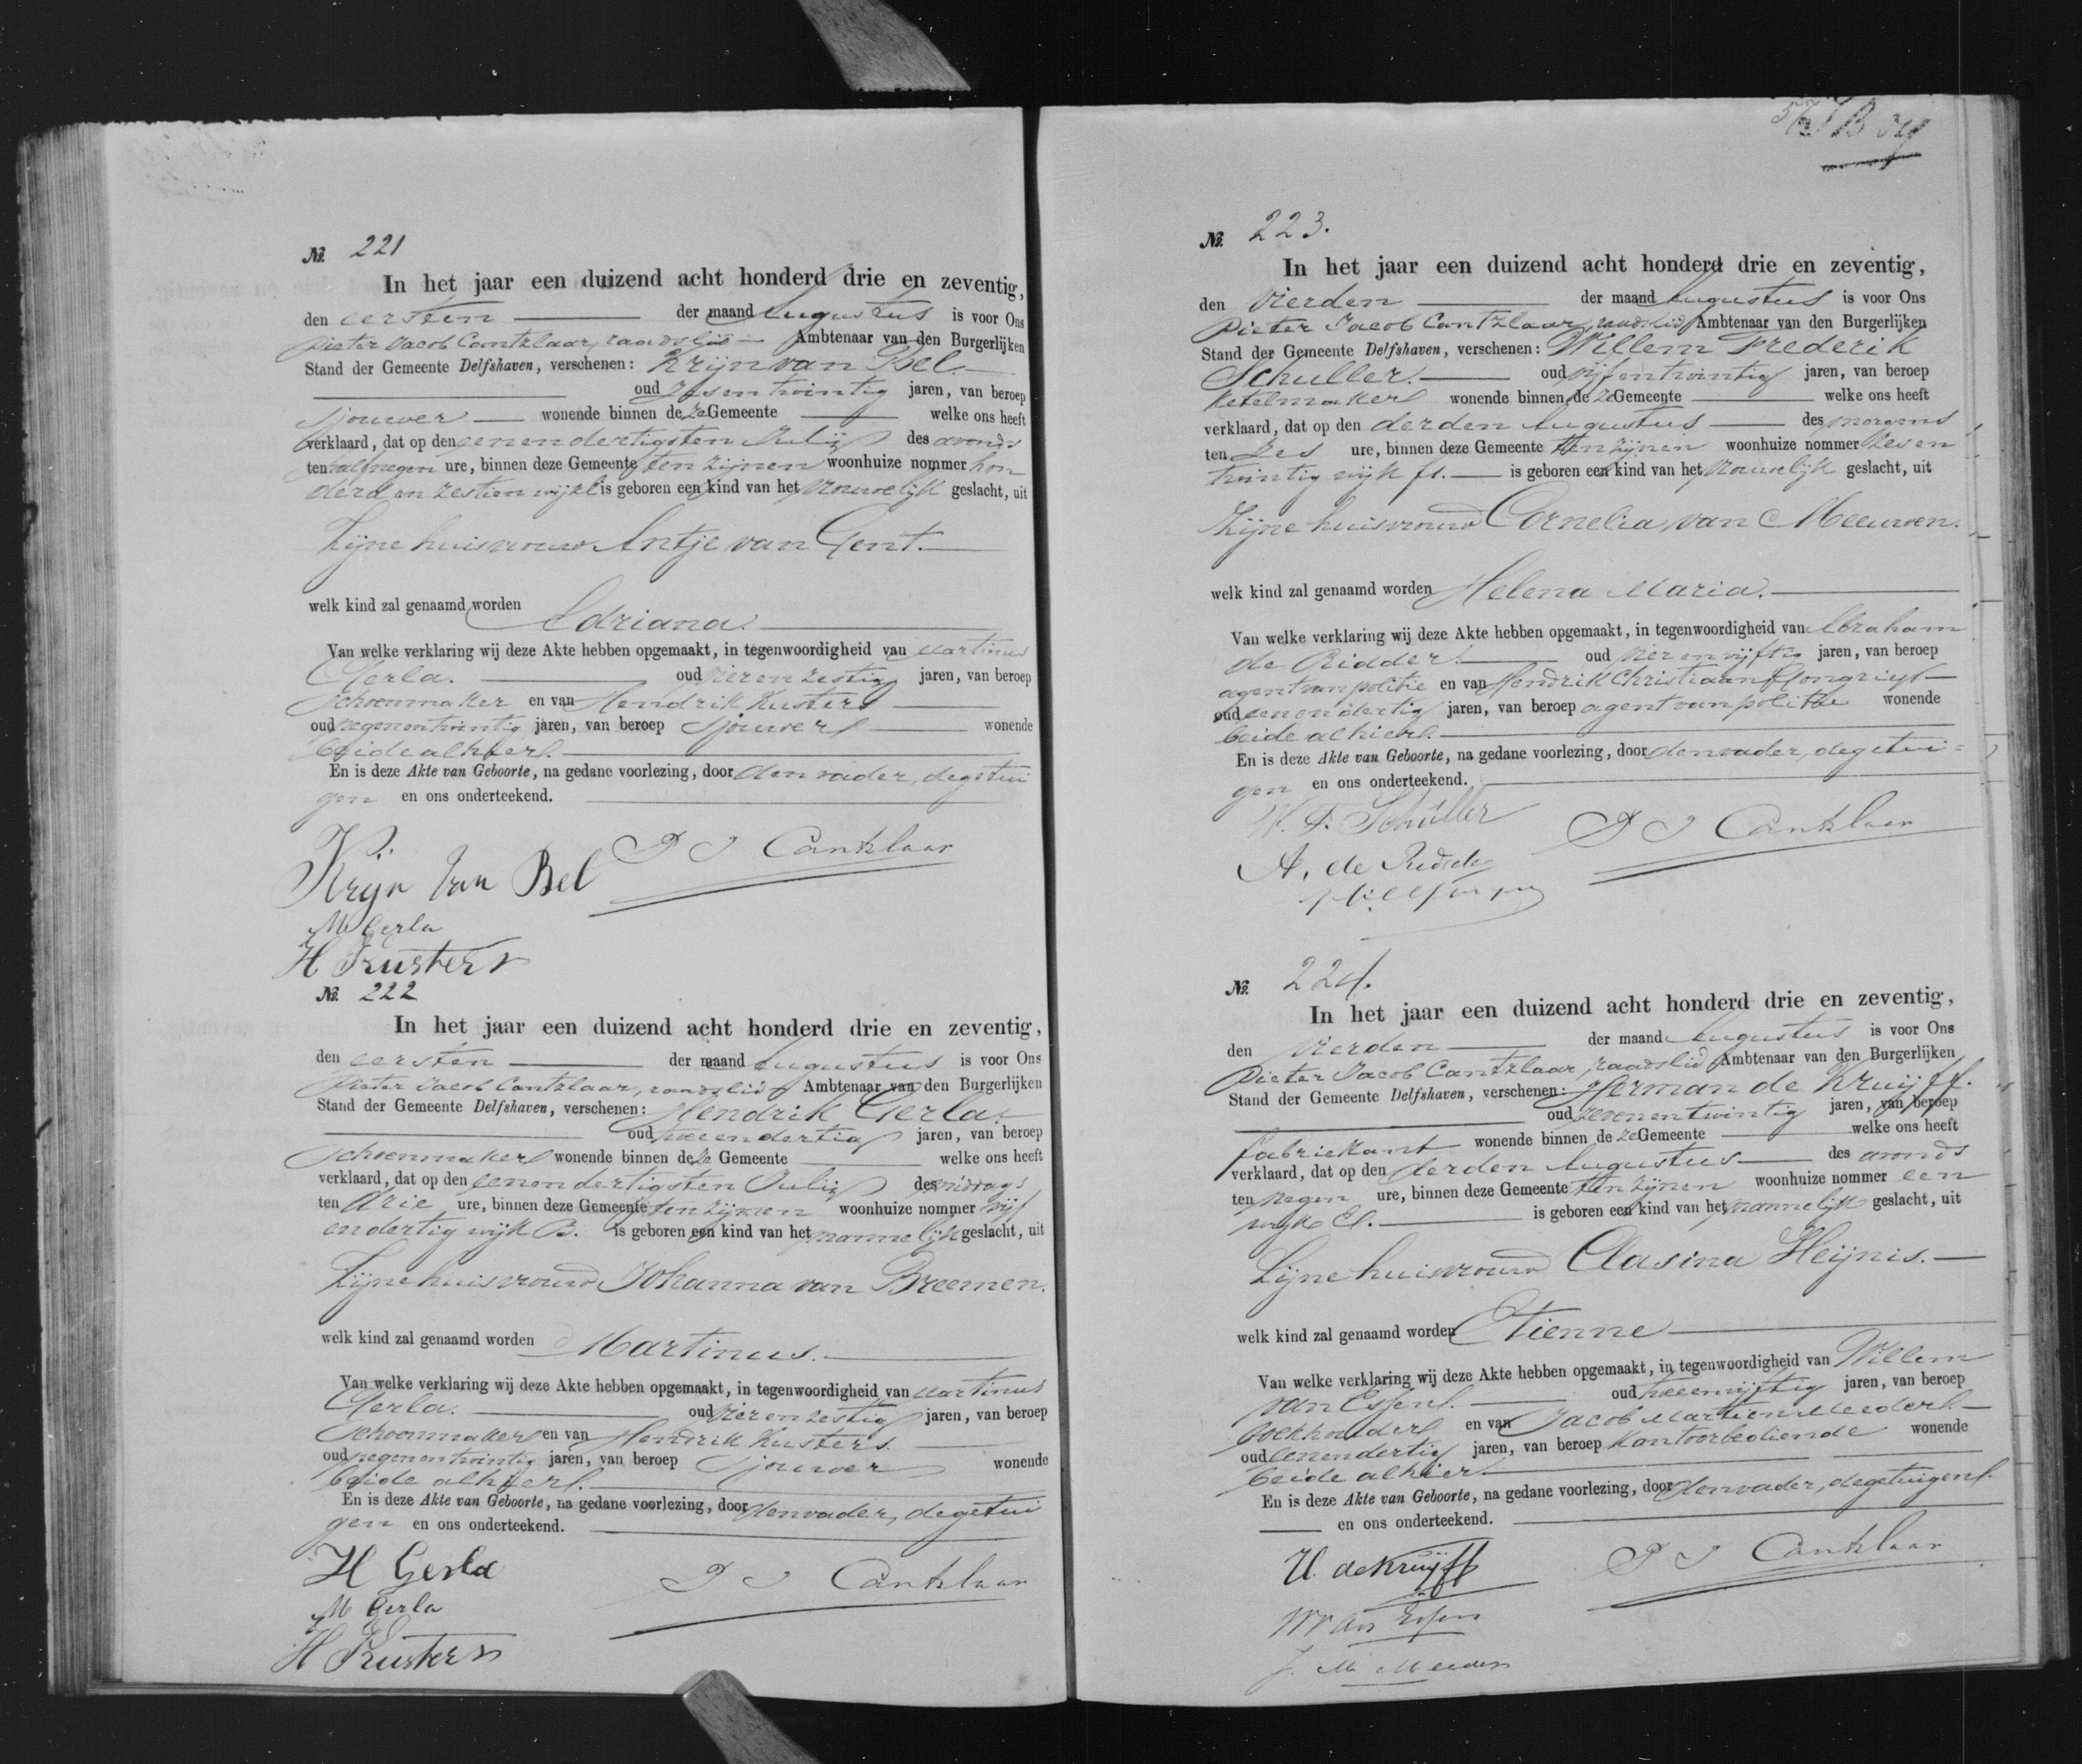 № 221
In het jaar een duizend acht honderd drie en zeventig,
den eersten der maand Augustus is voor Ons
Pieter Jacob Cantzlaar, raadslid Ambtenaar van den Burgerlijken
Stand der Gemeente Delfshaven, verschenen: Krijn van Bel
oud zesentwintig jaren, van beroep
sjouwer wonende binnen deze Gemeente welke ons heeft
verklaard, dat op den eenendertigsten Julij des avonds
ten half negen ure, binnen deze Gemeente ten zijnen woonhuize nommer hon
derd en zestien wijk is geboren een kind van het vrouwelijk geslacht, uit
Zijne huisvrouw Antje van Gent.
welk kind zal genaamd worden Adriana.
Van welke verklaring wij deze Akte hebben opgemaakt, in tegenwoordigheid van Martinus
Gerla. oud vierenzestig jaren, van beroep
schoenmaker en van Hendrik Kusters
oud negenentwintig jaren, van beroep sjouwer wonende
beide alhier.
En is deze Akte van Geboorte, na gedane voorlezing, door den vader, de getui
gen en ons onderteekend.
Krijn Van Bel P J Cantzlaar
M Gerla
H Kusters
№ 222
In het jaar een duizend acht honderd drie en zeventig,
den eersten der maand Augustus is voor Ons
Pieter Jacob Cantzlaar, raadslid Ambtenaar van den Burgerlijken
Stand der Gemeente Delfshaven, verschenen: Hendrik Gerla.
oud twee en dertig jaren, van beroep
Schoenmaker wonende binnen deze Gemeente welke ons heeft
verklaard, dat op den eenendertigsten Julij des middags
ten drie ure, binnen deze Gemeente ten zijnen woonhuize nommer vijf
en dertig wijk B. is geboren een kind van het mannelijk geslacht, uit
Zijne huisvrouw Johanna van Breemen.
welk kind zal genaamd worden Martinus.
Van welke verklaring wij deze Akte hebben opgemaakt, in tegenwoordigheid van Martinus
Gerla. oud vierenzestig jaren, van beroep
schoenmaker en van Hendrik Kusters.
oud negenentwintig jaren, van beroep sjouwer wonende
beide alhier.
En is deze Akte van Geboorte, na gedane voorlezing, door den vader, de getui
gen en ons onderteekend.
H Gerla P J Cantzlaar
M Gerla
H Kusters
№ 223.
In het jaar een duizend acht honderd drie en zeventig,
den vierden der maand Augustus is voor Ons
Pieter Jacob Cantzlaar, raadslid Ambtenaar van den Burgerlijken
Stand der Gemeente Delfshaven, verschenen: Willem Frederik
Schuller. oud vijfentwintig jaren, van beroep
Ketelmaker wonende binnen deze Gemeente welke ons heeft
verklaard, dat op den derden Augustus des morgens
ten zes ure, binnen deze Gemeente ten zijnen woonhuize nommer zes en
twintig wijk is geboren een kind van het vrouwelijk geslacht, uit
Zijne huisvrouw Cornelia van Meeuwen.
welk kind zal genaamd worden Helena Maria.
Van welke verklaring wij deze Akte hebben opgemaakt, in tegenwoordigheid van Abraham
de Ridder. oud vierenvijftig jaren, van beroep
agent van politie en van Hendrik Christiaan
oud eenendertig jaren, van beroep agent van politie wonende
beide alhier.
En is deze Akte van Geboorte, na gedane voorlezing, door den vader, de getui=
gen en ons onderteekend.
W. F. Schüller P J Cantzlaar
A. de Ridder
№ 224.
In het jaar een duizend acht honderd drie en zeventig,
den vierden der maand Augustus is voor Ons
Pieter Jacob Cantzlaar, raadslid Ambtenaar van den Burgerlijken
Stand der Gemeente Delfshaven, verschenen: Herman de Kruijff.
oud zevenentwintig jaren, van beroep
fabriekant wonende binnen deze Gemeente welke ons heeft
verklaard, dat op den derden Augustus des avonds
ten negen ure, binnen deze Gemeente ten zijnen woonhuize nommer een
wijk is geboren een kind van het mannelijk geslacht, uit
Zijne huisvrouw Clasina Heijnis.
welk kind zal genaamd worden Etienne
Van welke verklaring wij deze Akte hebben opgemaakt, in tegenwoordigheid van Willem
van Essen. oud tweeenvijftig jaren, van beroep
boekhouder en van Jacob Martien Meeder
oud eenendertig jaren, van beroep Kantoorbediende wonende
beide alhier
En is deze Akte van Geboorte, na gedane voorlezing, door den vader, de getuigen
en ons onderteekend.
H. de Kruijff P J Cantzlaar
W van Essen
J. M. Meeder